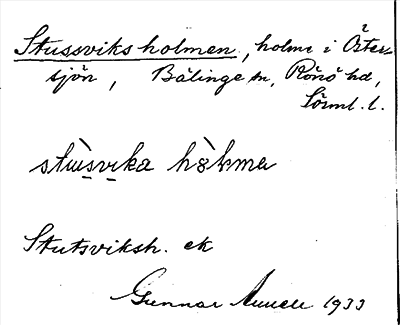 Stussviksholmen, holme i Öster-
sjön, Bälinge sn, Rönö hd,
Sörml. l.
stu̇̀svika hòlmen
Stutsviksh. ek
Gunnar 1933